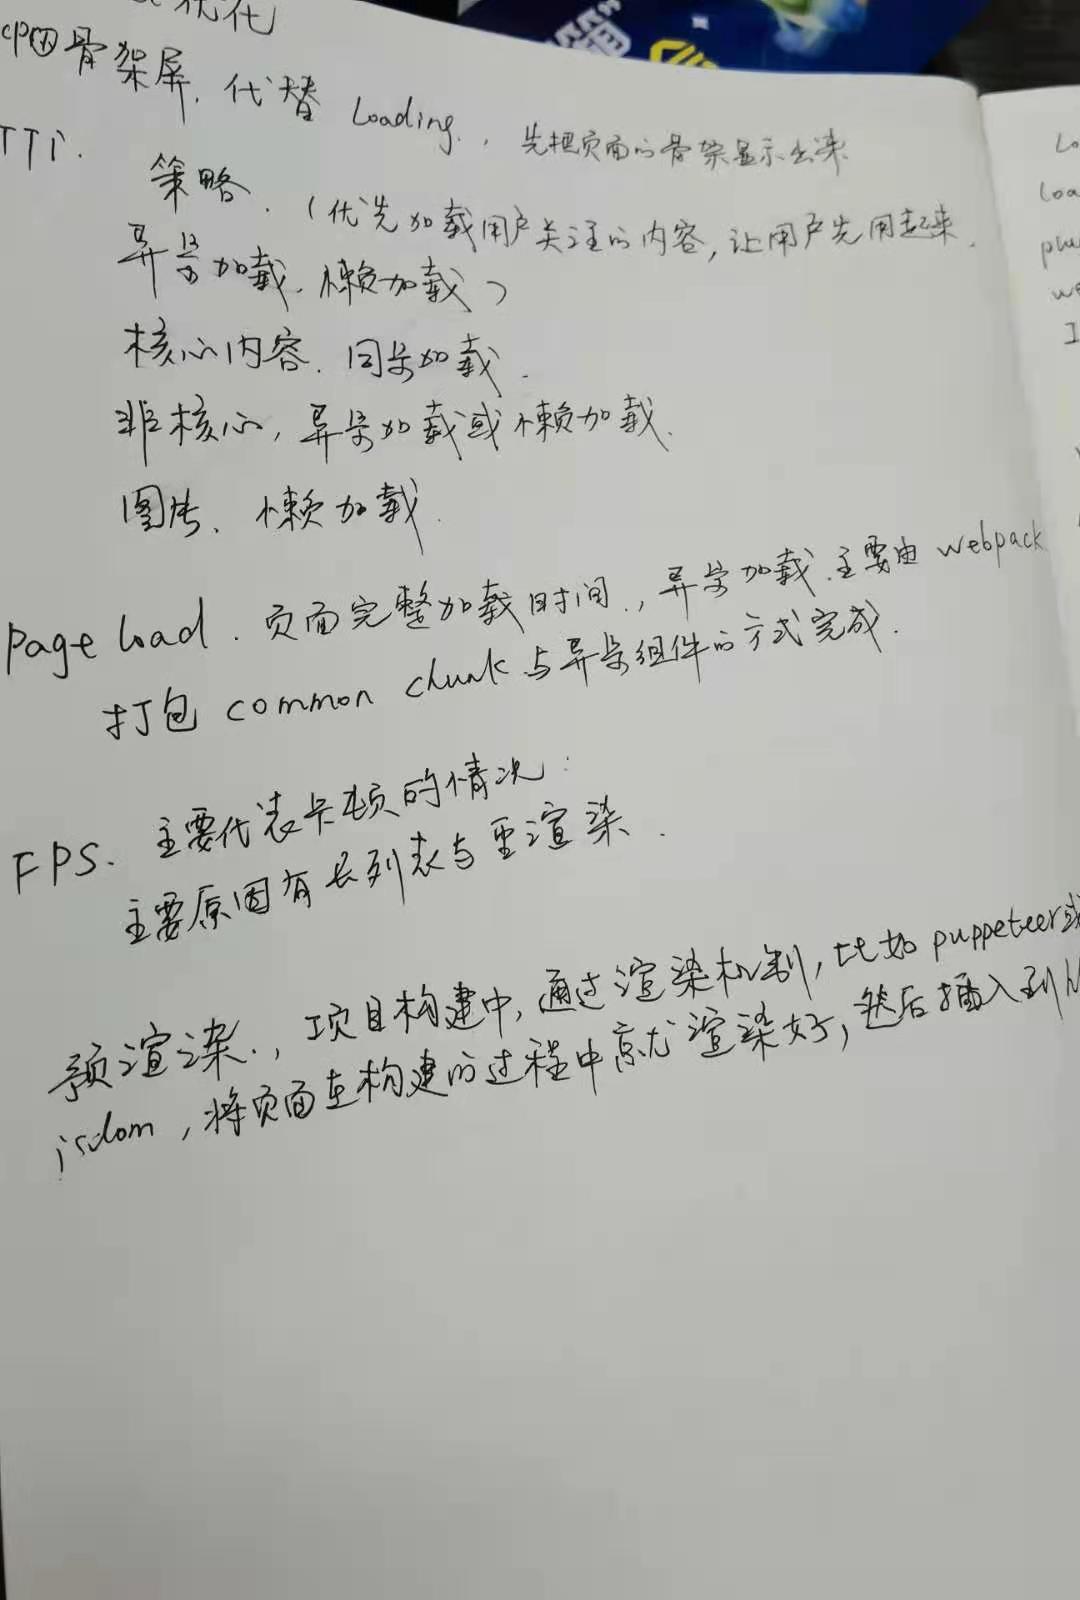 优化
cp用骨架屏, 代替 Loading., 先把页面的骨架显示出来
TTi.
策略. (优先加载用户关注的内容, 让用户先用起来.
异步加载, 懒加载)
核心内容. 同步加载.
非核心, 异步加载或懒加载.
图片、懒加载.
page load. 页面完整加载时间., 异步加载. 主要由 webpack
打包 common chunk 与异步组件的方式完成.
FPS. 主要代表卡顿的情况:
主要原因有长列表与重渲染.
预渲染., 项目构建中, 通过渲染机制, 比如 puppeteer或
jsdom, 将页面在构建的过程中就渲染好, 然后插入到
Lo
loa
plu
we
I